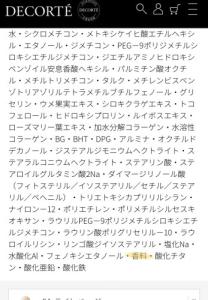 DECORTÉ
水・シクロメチコン・メトキシケイヒ酸エチルヘキシ
ル・エタノール・ジメチコン・PEG－9ポリジメチルシ
ロキシエチルジメチコン・ジエチルアミノヒドロキシ
ベンゾイル安息香酸ヘキシル・パルミチン酸オクチ
ル・メチルトリメチコン・タルク・メチレンビスベン
ゾトリアゾリルテトラメチルブチルフェノール・グリ
セリン・ウメ果実エキス・シロキクラゲエキス・トコ
フェロール・ヒドロキシプロリン・ルイボスエキス・
ローズマリー葉エキス・加水分解コラーゲン・水溶性
コラーゲン・BG・BHT・DPG・アルミナ・オクチルド
デカノール・ジステアルジモニウムヘクトライト・ス
テアラルコニウムヘクトライト・ステアリン酸・ステ
アロイルグルタミン酸2Na・ダイマージリノール酸
（フィトステリル／イソステアリル／セチル／ステア
リル／ベヘニル）・トリエトキシカプリリルシラン・
ナイロン－12・ポリエチレン・ポリメチルシルセスキ
オキサン・ラウリルPEG－9ポリジメチルシロキシエチ
ルジメチコン・ラウリン酸ポリグリセリル－10・ラウ
ロイルリシン・リンゴ酸ジイソステアリル・塩化Na・
水酸化Al・フェノキシエタノール・香料・酸化チタ
ン・酸化亜鉛・酸化鉄